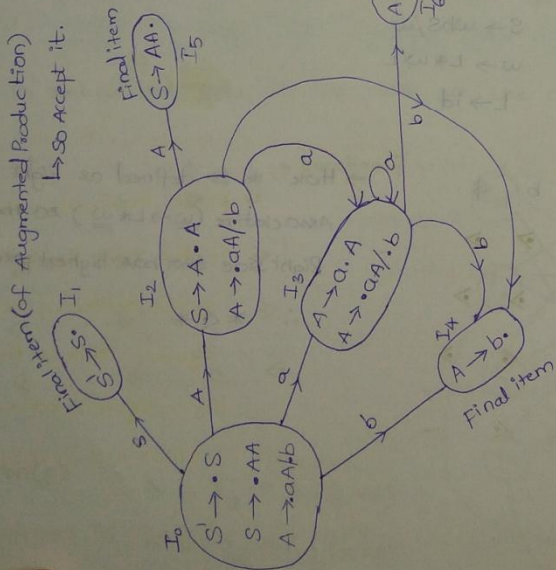 Final item (of Augmented Production)
↳ So Accept it.
Final item
I1
S' → S•
S
I0
S' → •S
S → •AA
A → •aA/•b
A
I2
S → A•A
A → •aA/•b
A
Final item
S → AA•
I5
a
a
I3
A → a•A
A → •aA/•b
a
b
b
b
I4
A → b•
Final item
A
I6
L → id